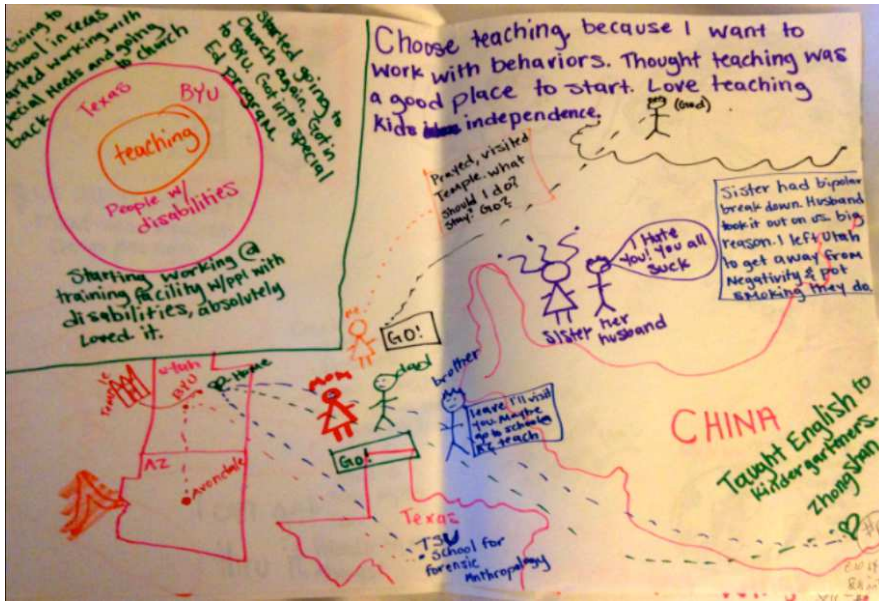 Going to
school in Texas
started working with
special Needs and going
back to church
Started going to
Church again. Got in
to BYU. Got into special
Ed Program.
Texas
BYU
teaching
People w/
disabilities
Starting working @
training facility w/ppl with
disabilities, absolutely
Loved it.
Choose teaching, because I want to
work with behaviors. Thought teaching was
a good place to start. Love teaching
kids independence.
(God)
Prayed, visited
Temple. what
should I do?
Stay? Go?
GO!
I Hate
You! You all
suck
Sister had bipolar
break down. Husband
took it out on us. big
reason. I left Utah
to get away from
Negativity & pot
smoking they do.
Sister her
husband
Utah
Temple
BYU
Home
AZ
Avondale
mom
dad
brother
GO!
leave I'll visit
you. Maybe
go to school @
AZ teach
Texas
TSU
School for
forensic
Anthropology
CHINA
Taught English to
kindergartners.
Zhongshan